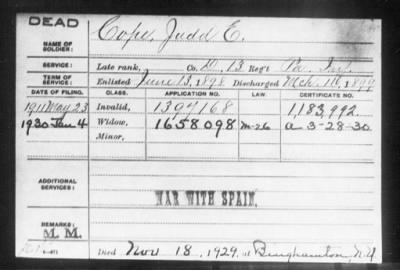 DEAD
NAME OF SOLDIER: Cope, Judd E.
SERVICE: Late rank, Co. D, 13 Reg't Pa. Inf.
TERM OF SERVICE: Enlisted June 13, 1898 Discharged Mch. 11, 1899
DATE OF FILING. CLASS. APPLICATION NO. LAW. CERTIFICATE NO.
1911 May 23 Invalid, 1394168 1,183,992
1930 Jan 4 Widow, 1658098 M-26 A 3-28-30
Minor,
ADDITIONAL SERVICES:
WAR WITH SPAIN.
REMARKS:
M. M.
Died Nov 18, 1929, at Binghamton, N.Y.